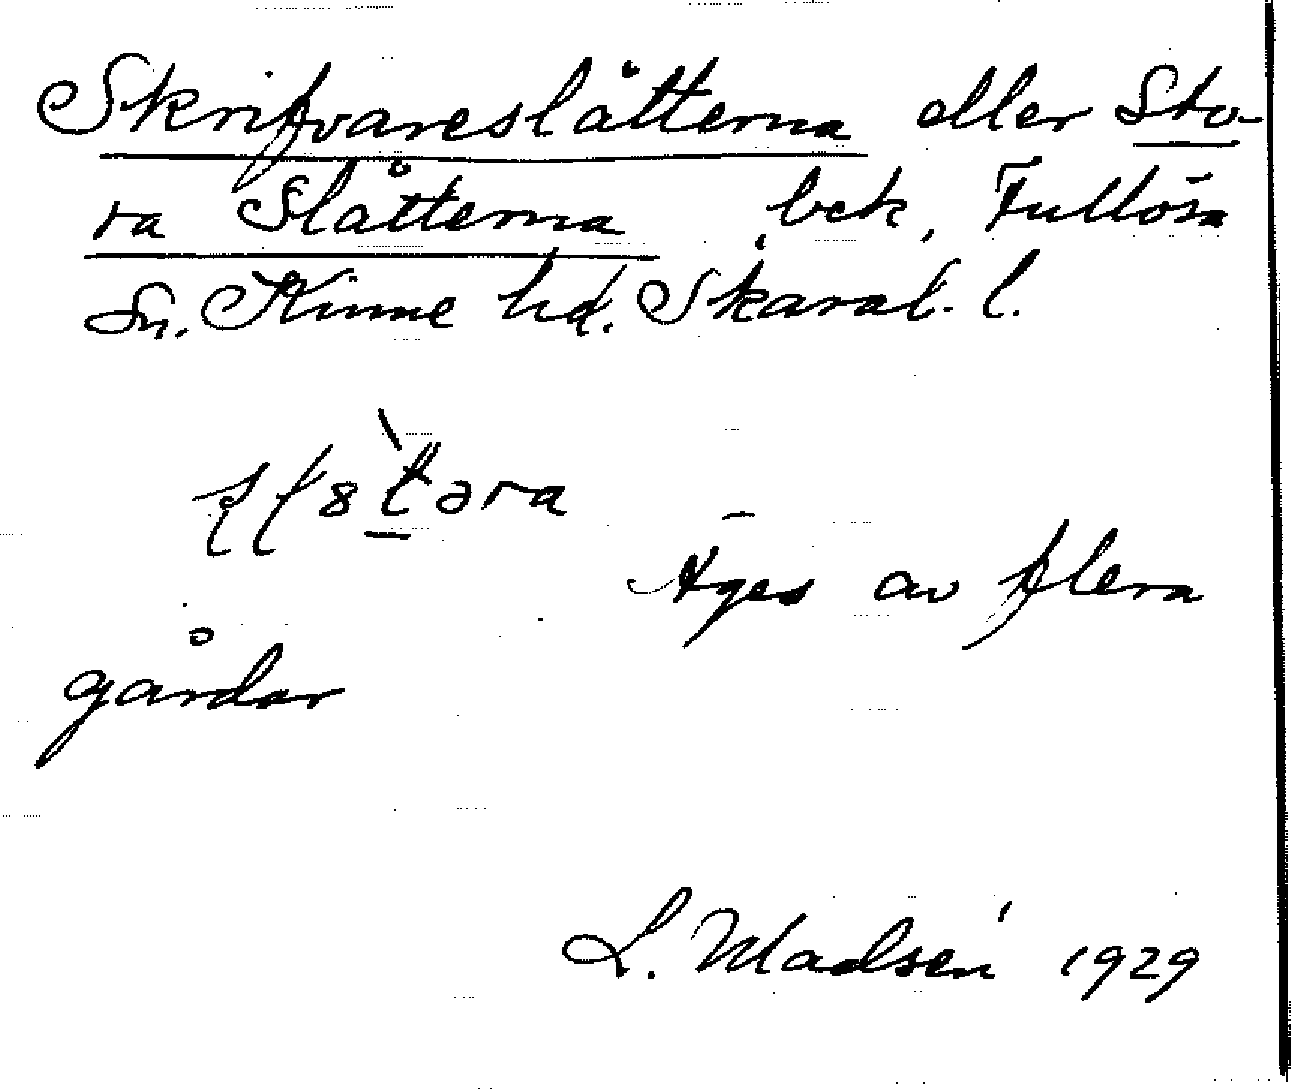 Skrifvareslåtterna eller Sto-
ra Slåtterna, bek, Fullösa
Sn. Kinne hd. Skarab. l.
Äges av flera
gårdar
L. Madsén 1929